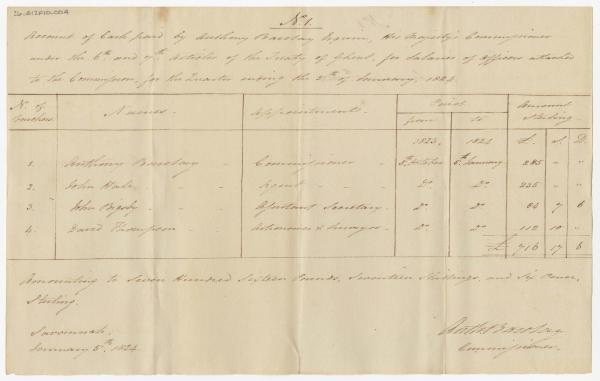 No. 1.
Account of Cash paid by Anthony Barclay Esquire, His Majesty's Commissioner
under the 6th and 7th Articles of the Treaty of Ghent, for Salaries of Officers attached
to the Commission, for the Quarter ending the 5th of January, 1824.
No. of Vouchers Names. Appointments. Period from to Amount Sterling.
1823. 1824 £. S. D.
1. Anthony Barclay - Commissioner - 5th October 5th January 285 - "
2. John Hale - - - Agent - - Do. Do. 235 - "
3. John Bigsby - - Assistant Secretary - Do. Do. 84 7 6
4. David Thompson - Astronomer & Surveyor - Do. Do. 112 10 "
£ 716 17 6
Amounting to Seven Hundred Sixteen Pounds, Seventeen Shillings, and Six Pence,
Sterling.
Savannah,
January 5th. 1824
Anth Barclay
Commissioner.